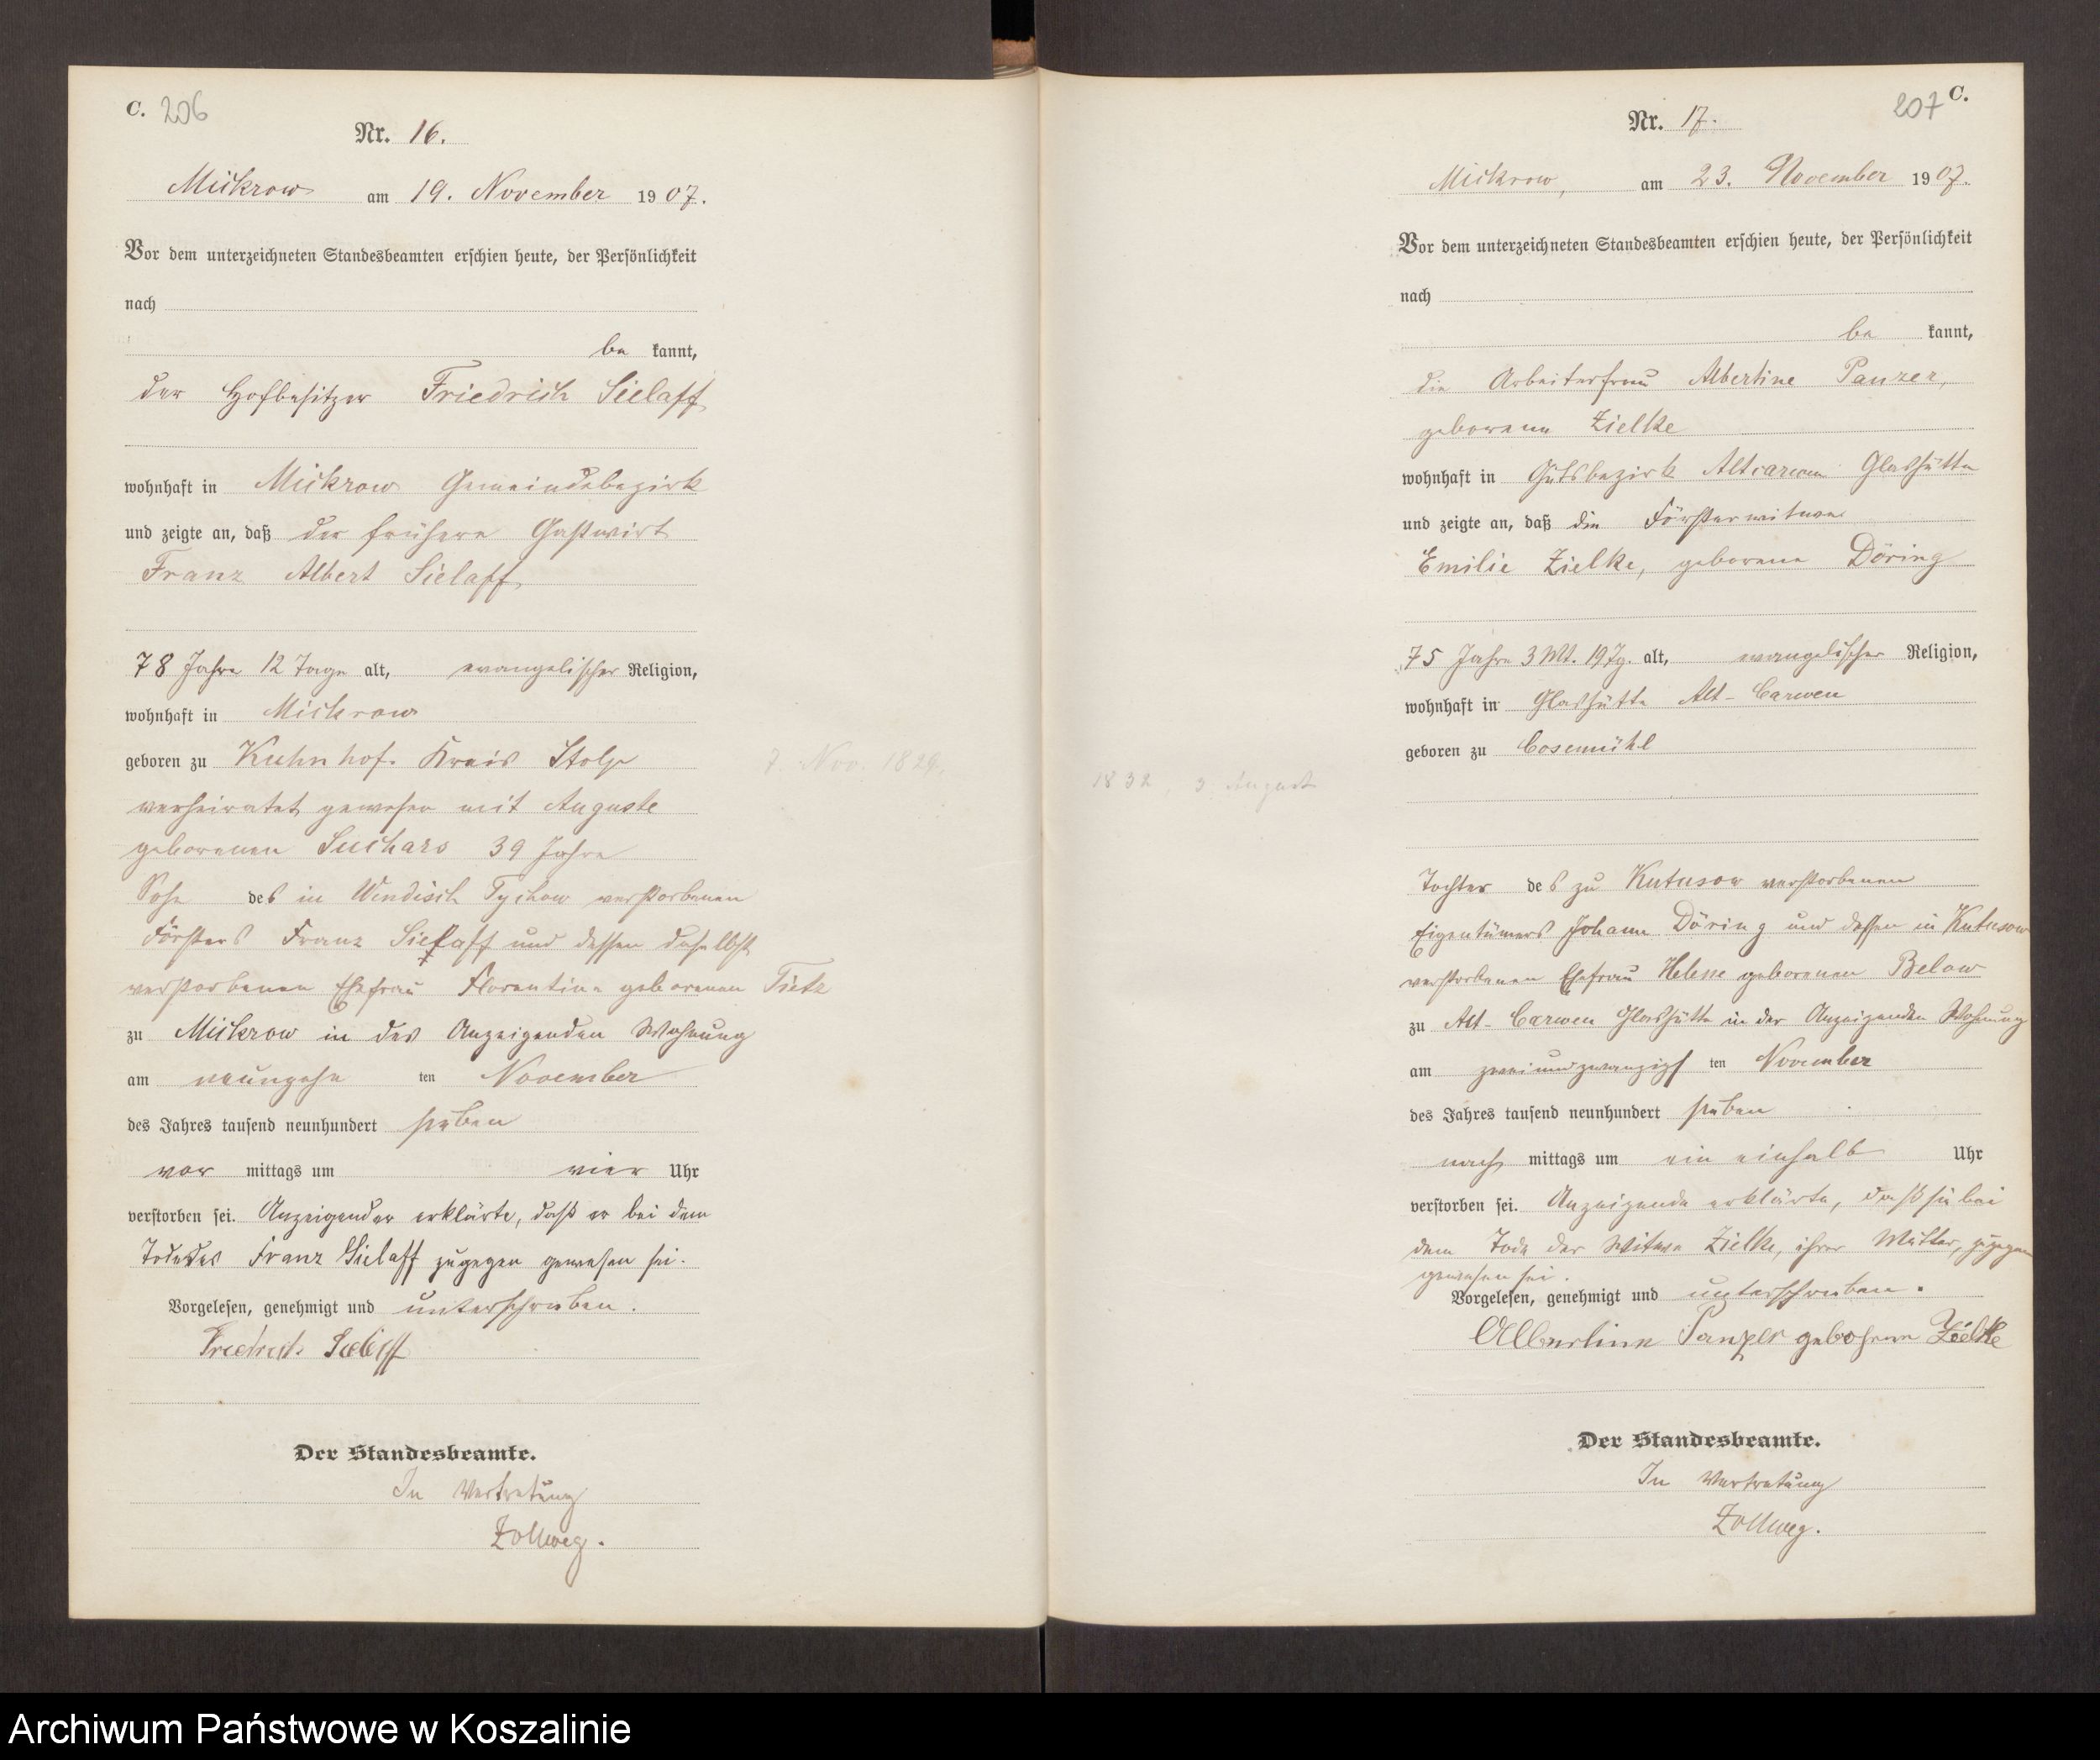 C. 206
Nr. 16.
Mickrow am 19. November 1907.
Vor dem unterzeichneten Standesbeamten erschien heute, der Persönlichkeit
nach
be kannt,
der Hofbesitzer Friedrich Sielaff
wohnhaft in Mickrow Gemeindebezirk
und zeigte an, daß der frühere Gastwirt
Franz Albert Sielaff
78 Jahre 12 Tage alt, evangelischer Religion,
wohnhaft in Mickrow
geboren zu Kuhnhof. Kreis Stolp
7. Nov. 1829.
verheiratet gewesen mit Auguste
geborenen 39 Jahre
Sohn des in Wendisch Tychow verstorbenen
Försters Franz Sielaff und dessen daselbst
verstorbenen Ehefrau Florentine geborenen Tietz
zu Mickrow in des Anzeigenden Wohnung
am neunzehn ten November
des Jahres tausend neunhundert sieben
vor mittags um vier Uhr
verstorben sei. Anzeigender erklärte, daß er bei dem
Tode des Franz Sielaff zugegen gewesen sei.
Vorgelesen, genehmigt und unterschrieben.
Friedrich Sielaff
Der Standesbeamte.
In Vertretung
Zollweg.
207 C.
Nr. 17.
Mickrow, am 23. November 1907.
Vor dem unterzeichneten Standesbeamten erschien heute, der Persönlichkeit
nach
be kannt,
die Arbeiterfrau Albertine Panzer,
geborene Zielke
wohnhaft in Gutsbezirk Altcarwen Glashütte
und zeigte an, daß die Försterwitwe
Emilie Zielke, geborene Döring
75 Jahre 3 Mt. 19 Tg. alt, evangelischer Religion,
wohnhaft in Glashütte Alt-Carwen
geboren zu Cosemühl
1832, 3. August
Tochter des zu Kutusow verstorbenen
Eigentümers Johann Döring und dessen in Kutusow
verstorbenen Ehefrau Helene geborenen Below
zu Alt-Carwen Glashütte in der Anzeigenden Wohnung
am zweiundzwanzigs ten November
des Jahres tausend neunhundert sieben
nach mittags um ein einhalb Uhr
verstorben sei. Anzeigende erklärte, daß sie bei
dem Tode der Witwe Zielke, ihrer Mutter, zugegen
gewesen sei.
Vorgelesen, genehmigt und unterschrieben.
Albertine Panzer gebohrene Zielke
Der Standesbeamte.
In Vertretung
Zollweg.
Archiwum Państwowe w Koszalinie